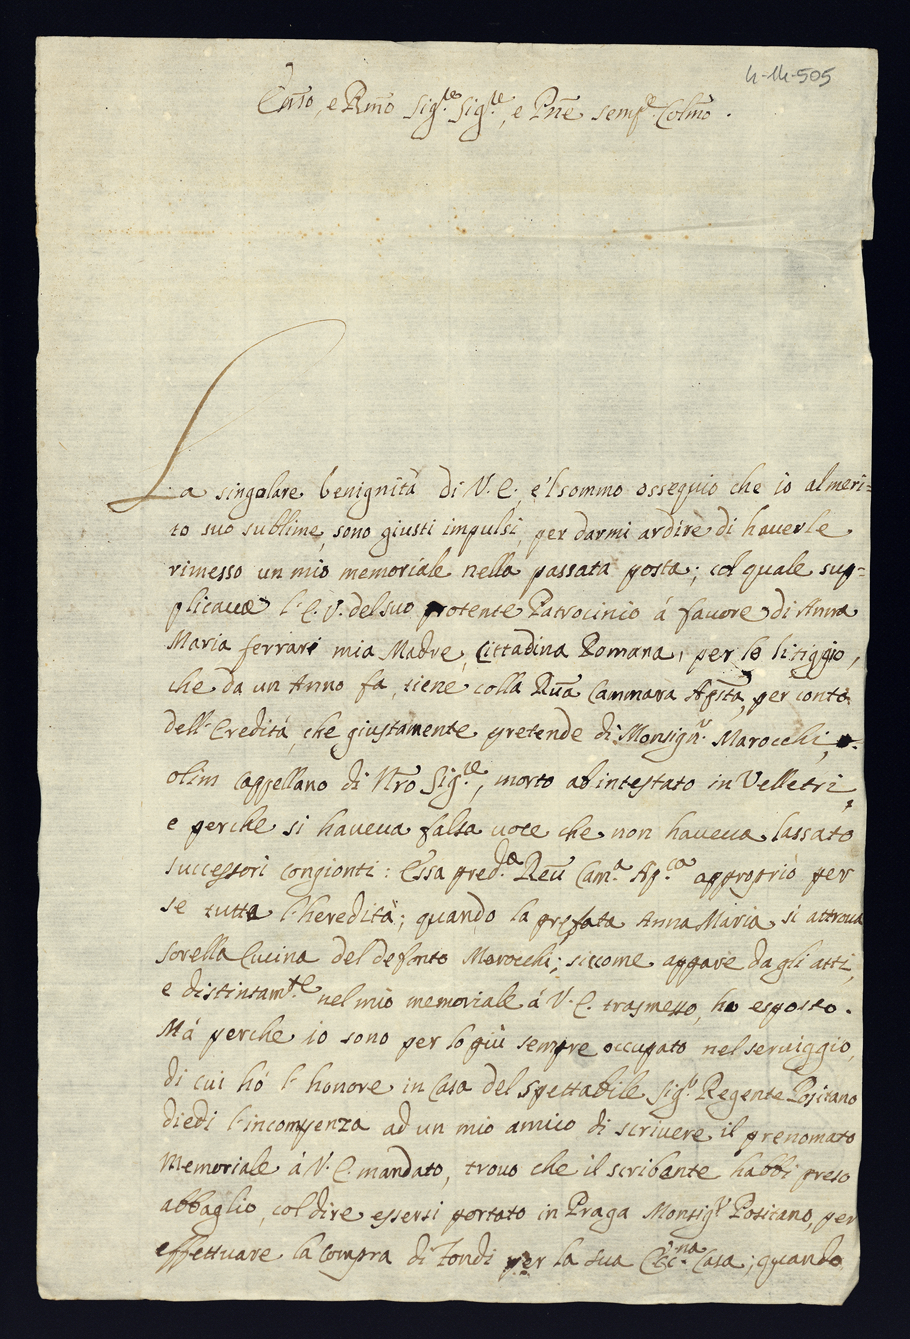 4-14-505
Emo, e Rmo Sig.re Sig.re, e Pne semp.e Colmo.
La singolare benignità di V. E. e 'l sommo ossequio che io al meri=
to suo sublime, sono giusti impulsi, per darmi ardire di haverle
rimesso un mio memoriale nella passata posta; col quale sup=
plicavæ l'E.V. del suo protente Patrocinio á favore di Anna
Maria ferrari mia Madre, Cittadina Romana, per lo litiggio,
che da un Anno fa, tiene colla Rũa Cammara Apsta, per conto
dell'Eredità, che giustamente pretende di Monsign.r Marocchi,
olim Cappellano di Nro Sig.re, morto ab intestato in Velletri,
e perche si haveva falsa voce che non havevæ lassato
successori congionti: Essa pred.a Reu Cam.a Ap.ca appropriò per
se tutta l'heredità; quando la prefata Anna Maria si attrova
sorella Cucina del defonto Marocchi; siccome appare dagli atti,
e distintam.te nel mio memoriale á V. E. trasmesso, ho esposto.
Má perche io sono per lo più sempre occupato nel serviggio,
di cui hó l'honore in Casa del spettabile Sig.r Regente Positano
diedi l'incompenza ad un mio amico di scrivere il prenomato
Memoriale á V. E. mandato, trovo che il scribente habbi preso
abbaglio, col dire essersi portato in Praga Monsig.r Positano, per
effettuare la compra di Fondi per la sua Ecc.na Casa; quando